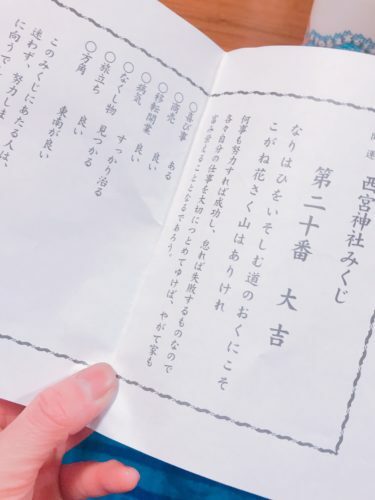 運
西宮神社みくじ
第二十番 大吉
なりはひをいそしむ道のおくにこそ
こがね花さく山はありけれ
何事も努力すれば成功し、怠れば失敗するものなので
各々自分の仕事を大切につとめてゆけば、やがて家も
富み栄えることとなるであろう。
○喜び事 ある
○商売 良い
○移転開業 良い
○病気 すっかり治る
○なくし物 見つかる
○旅立ち 良い
○方角 東南が良い
このみくじにあたる人は、
迷わず、努力しま
に向うで